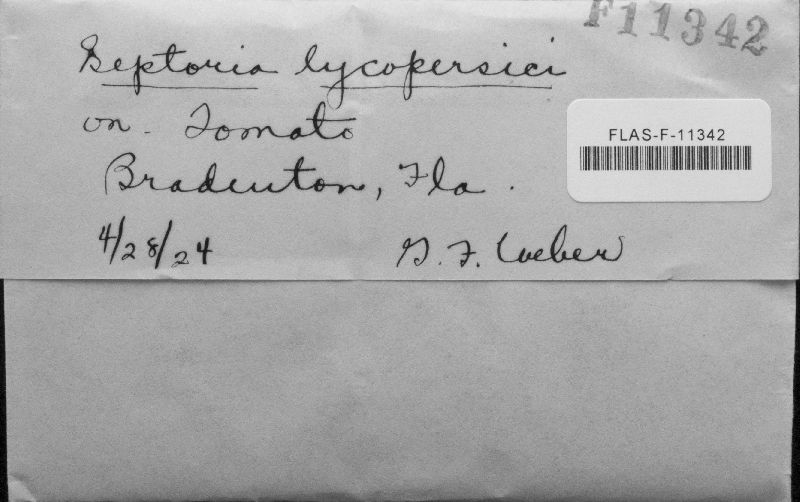 F11342
Septoria lycopersici
on. Tomato
FLAS-F-11342
Bradenton, Fla.
4/28/24 G. F. Weber